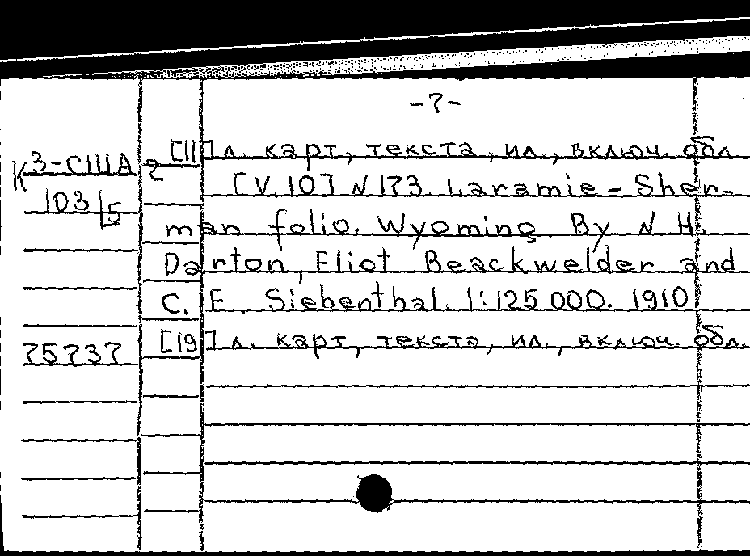 -7-
К 3-США 2 [11] л. карт, текста, ил., включ. обл
103/5 [V. 10] N 173. Laramie - Sher-
man folio. Wyoming. By N. H.
Darton, Eliot Beackwelder and
C. E. Siebenthal. 1:125 000. 1910
75737 [19] л. карт, текста, ил., включ. обл.